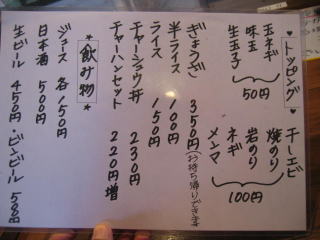 トッピング
玉ネギ
味玉
生玉子
50円
チーエビ
焼のり
岩のり
ネギ
メンマ
100円
ぎょうざ 350円(お持ち帰りできます)
半ライス 100円
ライス 150円
チャーシュウ丼 230円
チャーハンセット 220円増
*飲み物*
ジュース 各150円
日本酒 500円
生ビール 450円・ビンビール 500円